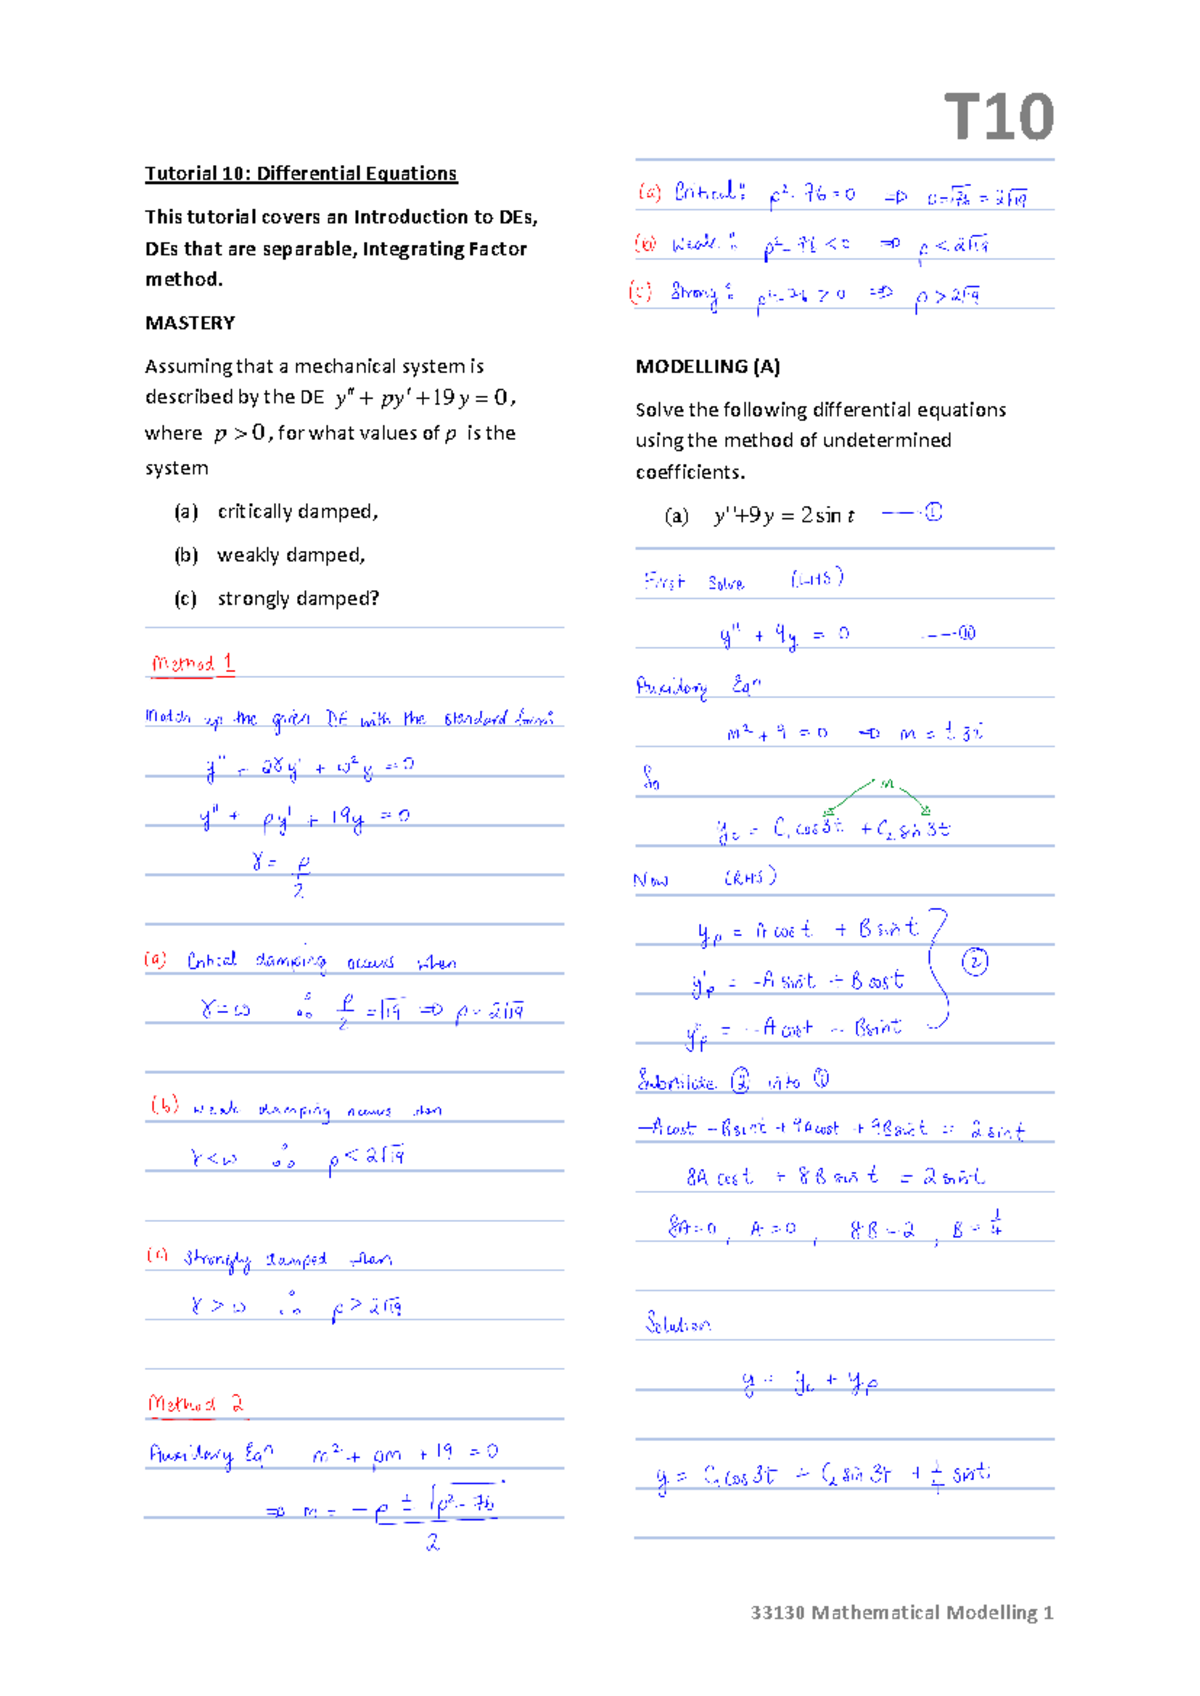 T10
Tutorial 10: Differential Equations
This tutorial covers an Introduction to DEs,
DEs that are separable, Integrating Factor
method.
MASTERY
Assuming that a mechanical system is
described by the DE y" + py' + 19y = 0,
where p > 0, for what values of p is the
system
(a) critically damped,
(b) weakly damped,
(c) strongly damped?
Method 1
Match up the given DE with the standard form
y" + 2γy' + ω²y = 0
y" + py' + 19y = 0
γ = p/2
(a) Critical damping occurs when
γ = ω ∴ p/2 = √19 ⇒ p = 2√19
(b) weak damping occurs when
γ < ω ∴ p < 2√19
(c) Strongly damped when
γ > ω ∴ p > 2√19
Method 2
Auxilary Eqn m² + pm + 19 = 0
⇒ m = -p ± √p² - 76
2
(a) Critical: p² - 76 = 0 ⇒ p = √76 = 2√19
(b) Weak: p² - 76 < 0 ⇒ p < 2√19
(c) Strong: p² - 76 > 0 ⇒ p > 2√19
MODELLING (A)
Solve the following differential equations
using the method of undetermined
coefficients.
(a) y''+9y = 2sin t —— ①
First Solve (LHS)
y" + 9y = 0
Auxilary Eqn
m² + 9 = 0 ⇒ m = ± 3i
So
m
yc = C₁ cos 3t + C₂ sin 3t
Now (RHS)
yp = A cos t + B sin t
y'p = -A sin t + B cos t ②
y"p = -A cos t - B sin t
Substitute ② into ①
-A cos t - B sin t + 9A cos t + 9B sin t = 2 sin t
8A cos t + 8B sin t = 2 sin t
8A = 0, A = 0, 8B = 2, B = 1/4
Solution
y = yc + yp
y = C₁ cos 3t + C₂ sin 3t + 1/4 sin t
33130 Mathematical Modelling 1